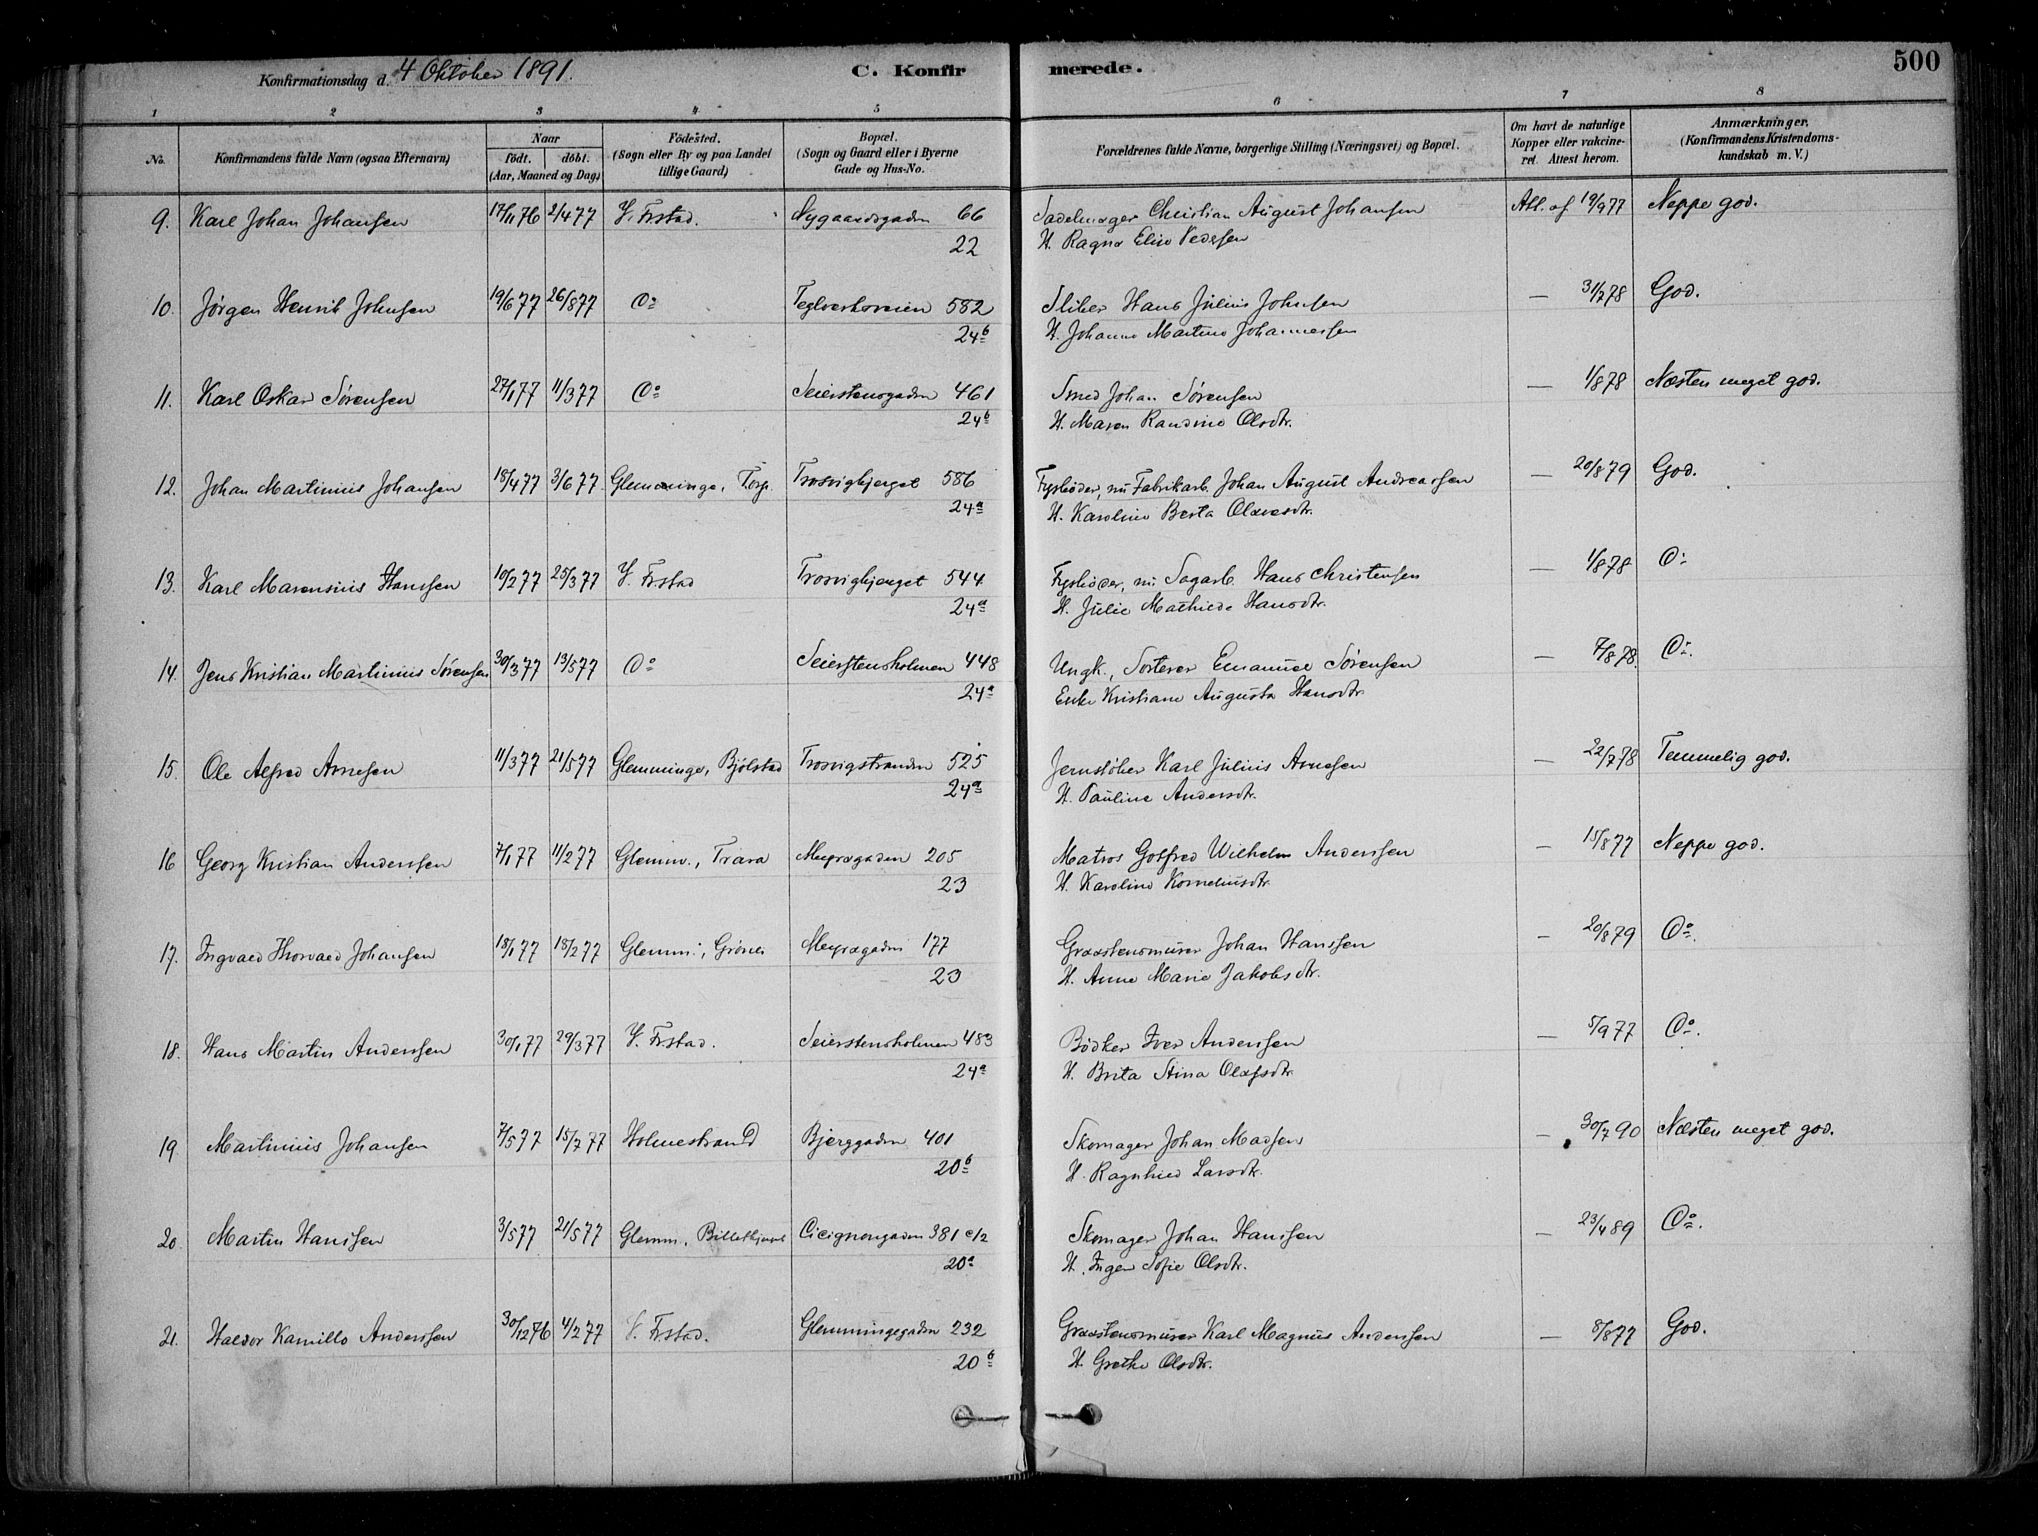 500
Konfirmationsdag d. 4 Oktober 1891.
C. Konfirmerede.
1 2 3 4 5 6 7 8
No.
Konfirmandens fulde Navn (ogsaa Efternavn)
Naar
født. døbt.
(Aar, Maaned og Dag)
Fødested.
(Sogn eller By og paa Landet
tillige Gaard)
Bopæl.
(Sogn og Gaard eller i Byerne
Gade og Hus-No.
Forældrenes fulde Navne, borgerlige Stilling (Næringsvei) og Bopæl.
Om havt de naturlige
Kopper eller vakcine-
ret. Attest herom.
Anmærkninger.
(Konfirmandens Kristendoms-
kundskab m. V.)
9. Karl Johan Johansen 17/11 76 2/4 77 V. Frstad. Nygaardsgaden 66 Sadelmager Christian August Johansen Att. af 19/9 77 Neppe god.
22 H. Ragna Elise Pedersen
10. Jørgen Henrik Johnsen 19/6 77 26/8 77 Do Teglverksveien 582 Sliber Hans Julius Johnsen — 31/7 78 God.
24b H. Johanne Martine Johannessen
11. Karl Oskar Sørensen 27/1 77 11/3 77 Do Seierstensgaden 461 Smed Johan Sørensen — 1/8 78 Næsten meget god.
24b H. Maren Randine Olsdtr.
12. Johan Martinius Johansen 18/4 77 3/6 77 Glemminge, Torp. Trosvigbjerget 586 Fyrbøder, nu Fabrikarb. Johan August Andreassen — 20/8 79 God.
24a H. Karoline Berta Olavesdtr.
13. Karl Marensius Hanssen 10/2 77 25/3 77 V. Frstad Trosvigbjerget 544 Fyrbøder, nu Sagarb. Hans Christensen — 1/8 78 Do
24a H. Julie Mathilde Hansdtr.
14. Jens Kristian Martinius Sørensen 30/3 77 13/5 77 Do Seierstensholmen 448 Ungk., Sorterer Emanuel Sørensen — 7/8 78. Do.
24a Enke Kristiane Augusta Hansdtr.
15. Ole Alfred Arnesen 11/3 77 21/5 77 Glemminge, Bjølstad Trosvigstranden 525 Jernstøber Karl Julius Arnesen — 22/7 78 Temmelig god.
24a H. Pauline Andersdtr.
16 Georg Kristian Anderssen 7/1 77 11/2 77 Glemm., Trara 205 Matros Gotfred Wilhelm Anderssen — 15/8 77 Neppe god.
23 H. Karoline Korneliusdtr.
17. Ingvald Thorvald Johansen 18/1 77 18/2 77 Glemm., Grønli 177 Graastensmurer Johan Hanssen — 20/8 79 Do.
23 H. Anne Marie Jakobsdtr.
18. Hans Martin Anderssen 30/1 77 29/3 77 V. Frstad. Seierstensholmen 483 Bødker Iver Anderssen — 5/9 77 Do.
24a H. Brita Stina Olafsdtr.
19. Martinius Johansen 7/5 77 15/7 77 Holmestrand Bjerggaden 401 Skomager Johan Madsen — 30/7 90 Næsten meget god.
20b H. Ragnhild Larsdtr.
20. Martin Hanssen 3/5 77 21/5 77 Glemm. Cicignongaden 381 c/2 Skomager Johan Hanssen — 23/4 89 Do.
20a H. Inger Sofie Olsdtr.
21. Haldor Kamillo Anderssen 30/12 76 4/2 77 V. Frstad. Glemmingegaden 232 Graastensmurer Karl Magnus Anderssen — 8/8 77 God.
20b H. Grethe Olsdtr.